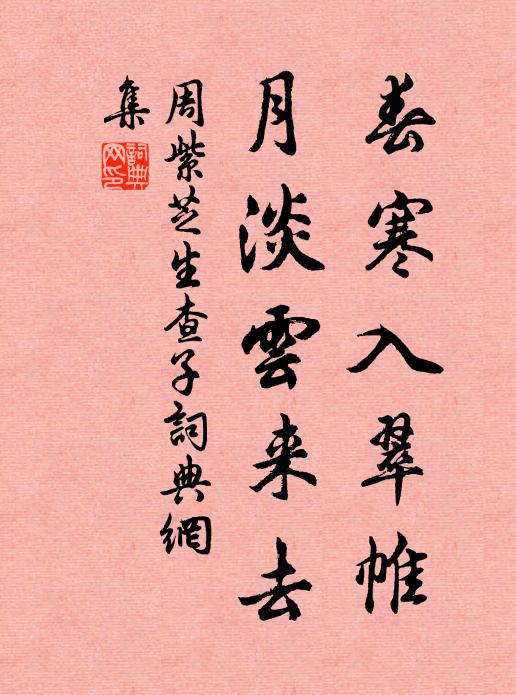 春寒入翠帷
月淡雲来去
周紫芝生查子詞典網
集
詞典網印